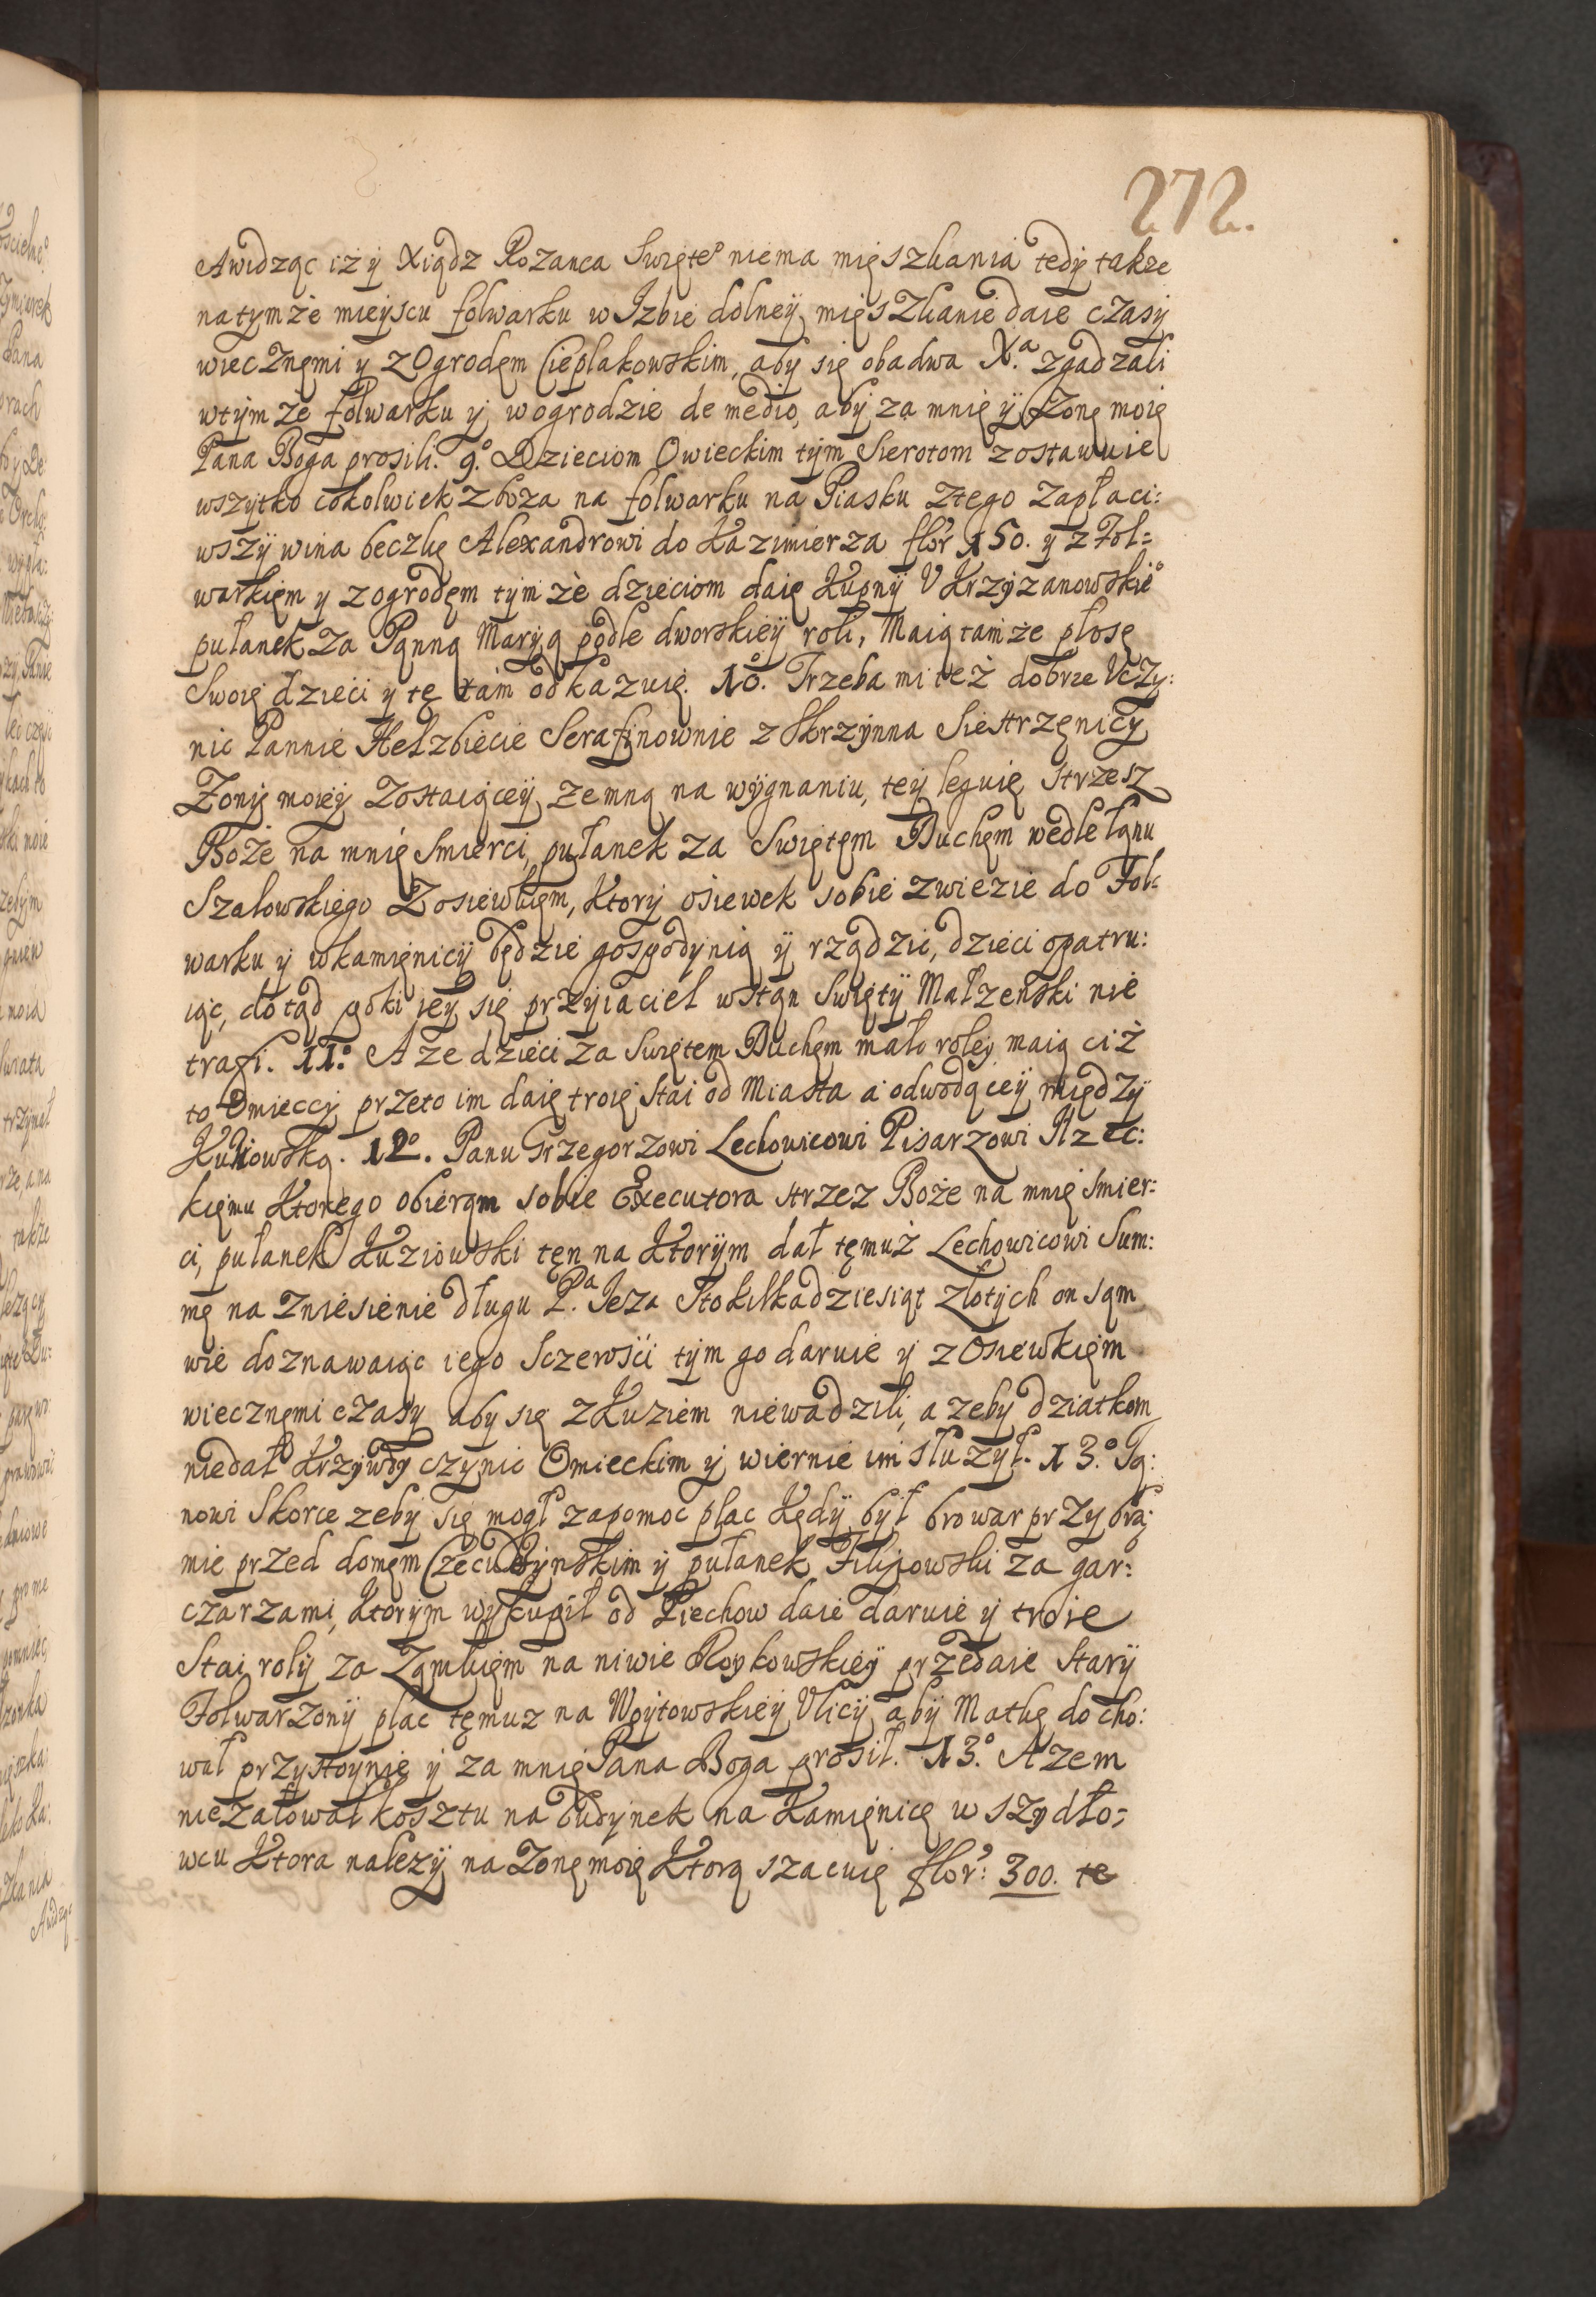 272.
Awidząc iż y Xiądz Rozanca Swięte° niema mięszkania tedy takze
natymże mieyscu folwarku w Izbie dolney, mięszkanie daie czasy
wiecznęmi y z Ogrodęm Cieplakowskim, aby się obadwa X.ª zgadzali
wtymże folwarku y wogrodzie de medio, aby za mnię y Zonę moię
Pana Boga prosili. 9.° Dzieciom Owieckim tym Sierotom zostawuie
wszytko cokolwiek zboza na folwarku na Piasku Ztego Zapłaci:
wszy wina beczkę Alexandrowi do Kazimierza flor 150. y z Fol=
warkięm y zogrodęm tymże dzieciom daię Kupny V Krzyżanowskie°
pułanek Za Pąnną Maryą podle dworskiey roli, Maią tamże płosę
Swoię dzieci y tę tam odkazuię. 10.° Trzeba mi też dobrze Vczy:
nic Pannie Helzbiecie Serafinownie z Skrzynna Siestrzęnicy
Zony moiey Zostaiącey zemną na wygnaniu, tey leguię strzesz
Boże na mnię smierci, pułanek za Swiętęm Duchęm wedle łąnu
Szalowskiego Zosiewkięm, Ktory osiewek sobie zwiezie do Fol=
warku y wkamięnicy będzie gospodynią y rządzic, dzieci opatru:
iąc, dotąd poki iey się przyiaciel wstąn Swięty Małzenski nie
trafi. 11.° A ze dzieci za Swiętęm Duchęm mało roley maią ciż
to Omieccy przeto im daię troię Stai od Miasta a odwodącey między
Kukowską. 12.° Panu Grzegorzowi Lechowicowi Pisarzowi Rzec:
kięmu Ktorego obierąm sobie Executora strzez Boże na mnię smier:
ci, pułanek Kuziowski tęn na Ktorym dał tęmuż Lechowicowi Sum:
mę na zniesienie długu P.ª Jeza Stokilkadziesiąt złotych on sąm
wie doznawaiąc iego Sczerości tym go daruie y z Osiewkięm
wiecznęmi czasy aby się z Kuziem niewadzili, a zeby dziatkom
niedał Krzywdy czynic Omieckim y wiernie im słuzył. 13.° Ją:
nowi Skorce zeby się mogł zapomoc plac Kędy był browar przy bra:
mie przed domęm y pułanek Filipowski za gar:
czarzami, Ktorym wykupił od Piechow daie daruie y troie
Stai roly za na niwie Roykowskiey przedaie Stary
Folwarzony plac tęmuz na Woytowskiey Vlicy aby Matkę docho:
wał przystoynię y za mnię Pana Boga prosił. 13.° A zem
niezałował kosztu na budynek na Kamięnicę w szydło=
wcu Ktora nalezy na Zonę moię Ktorą szacuię flor: 300. te